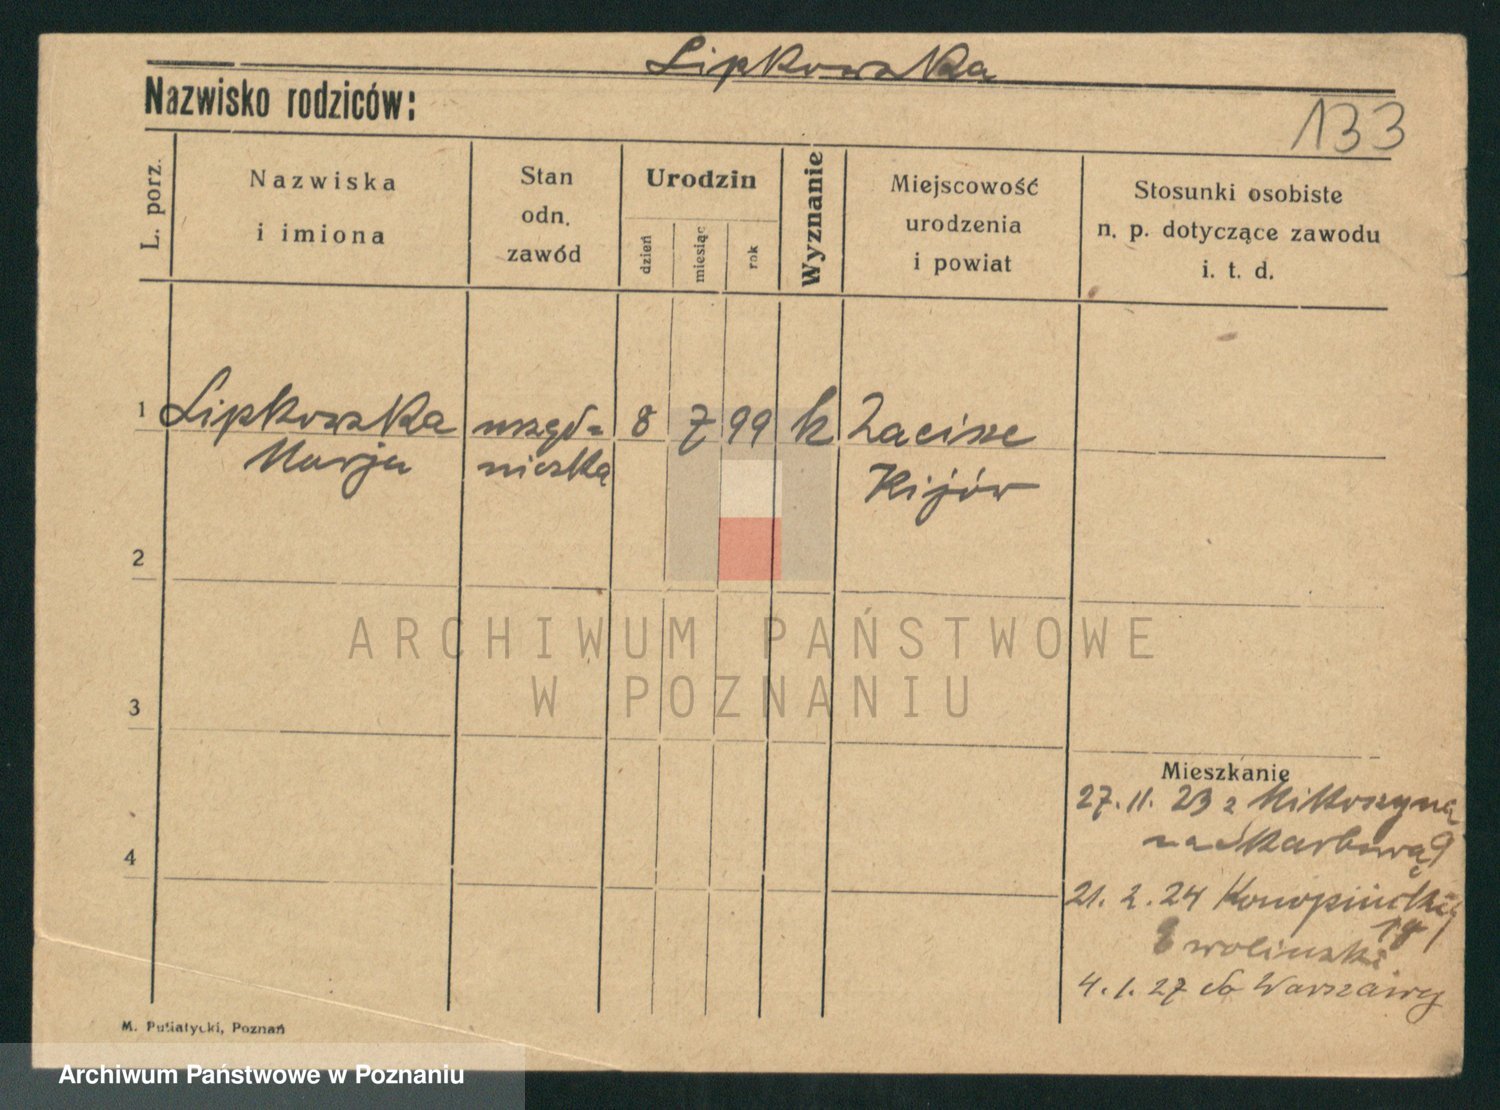 Lipkowska
Nazwisko rodziców:
133
L. porz.
Nazwiska
i imiona
Stan
odn.
zawód
Urodzin
dzień
miesiąc
rok
Wyznanie
Miejscowość
urodzenia
i powiat
Stosunki osobiste
n. p. dotyczące zawodu
i. t. d.
1 Lipkowska urzęd= 8 7 99 k Zacisze
Marja niczka Kijów
2
ARCHIWUM PAŃSTWOWE
W POZNANIU
3
Mieszkanie
27. 11. 23 z
na Skarbową 9
4
21. 2. 24
18
4. 1. 27 do Warszawy
M. Putiatycki, Poznań
Archiwum Państwowe w Poznaniu